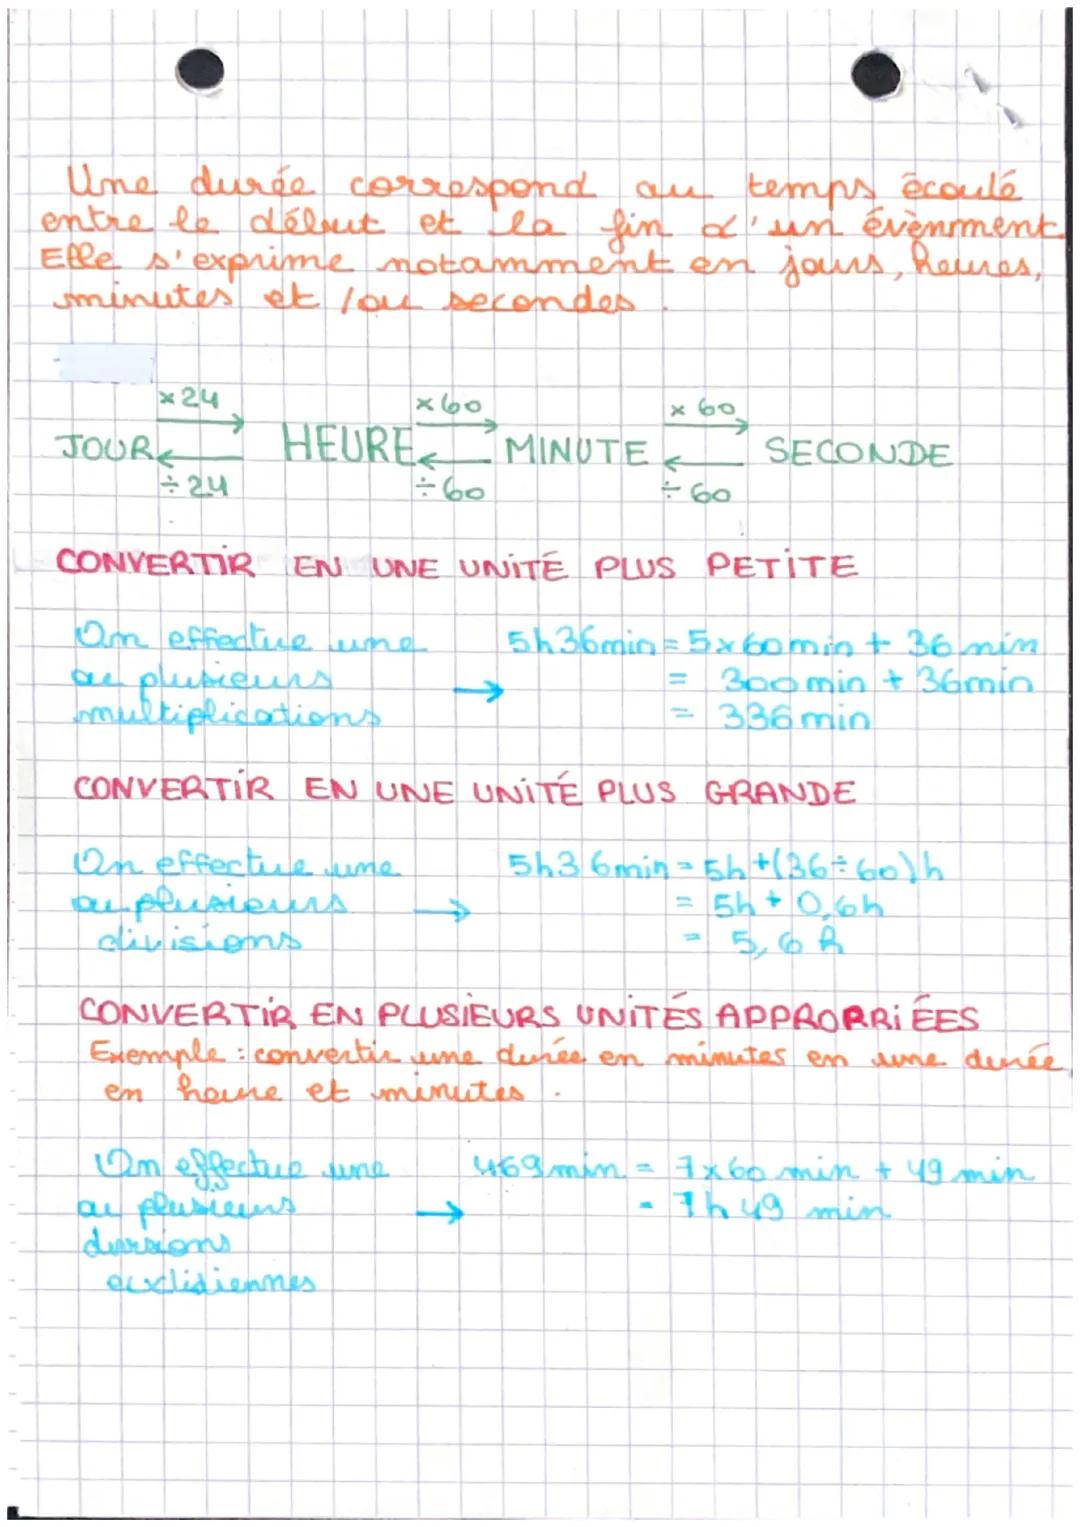 Une durée correspond au temps écoulé
entre le début et la fin d'un évènment.
Elle s'exprime notamment en jours, heures,
minutes et /ou secondes.
×24 ×60 ×60
JOUR HEURE MINUTE SECONDE
÷24 ÷60 ÷60
CONVERTIR EN UNE UNITÉ PLUS PETITE
On effectue une
ou plusieurs
multiplications
→
5h36min = 5×60min + 36 min
= 300min + 36min
= 336min
CONVERTIR EN UNE UNITÉ PLUS GRANDE
On effectue une
ou plusieurs
divisions
→
5h36min = 5h+(36÷60)h
= 5h + 0,6h
= 5,6 h
CONVERTIR EN PLUSIEURS UNITÉS APPRORRIÉES
Exemple : convertir une durée en minutes en une durée
en heure et minutes.
On effectue une
ou plusieurs
divisions
euclidiennes
→
469min = 7×60 min + 49 min
= 7h 49 min